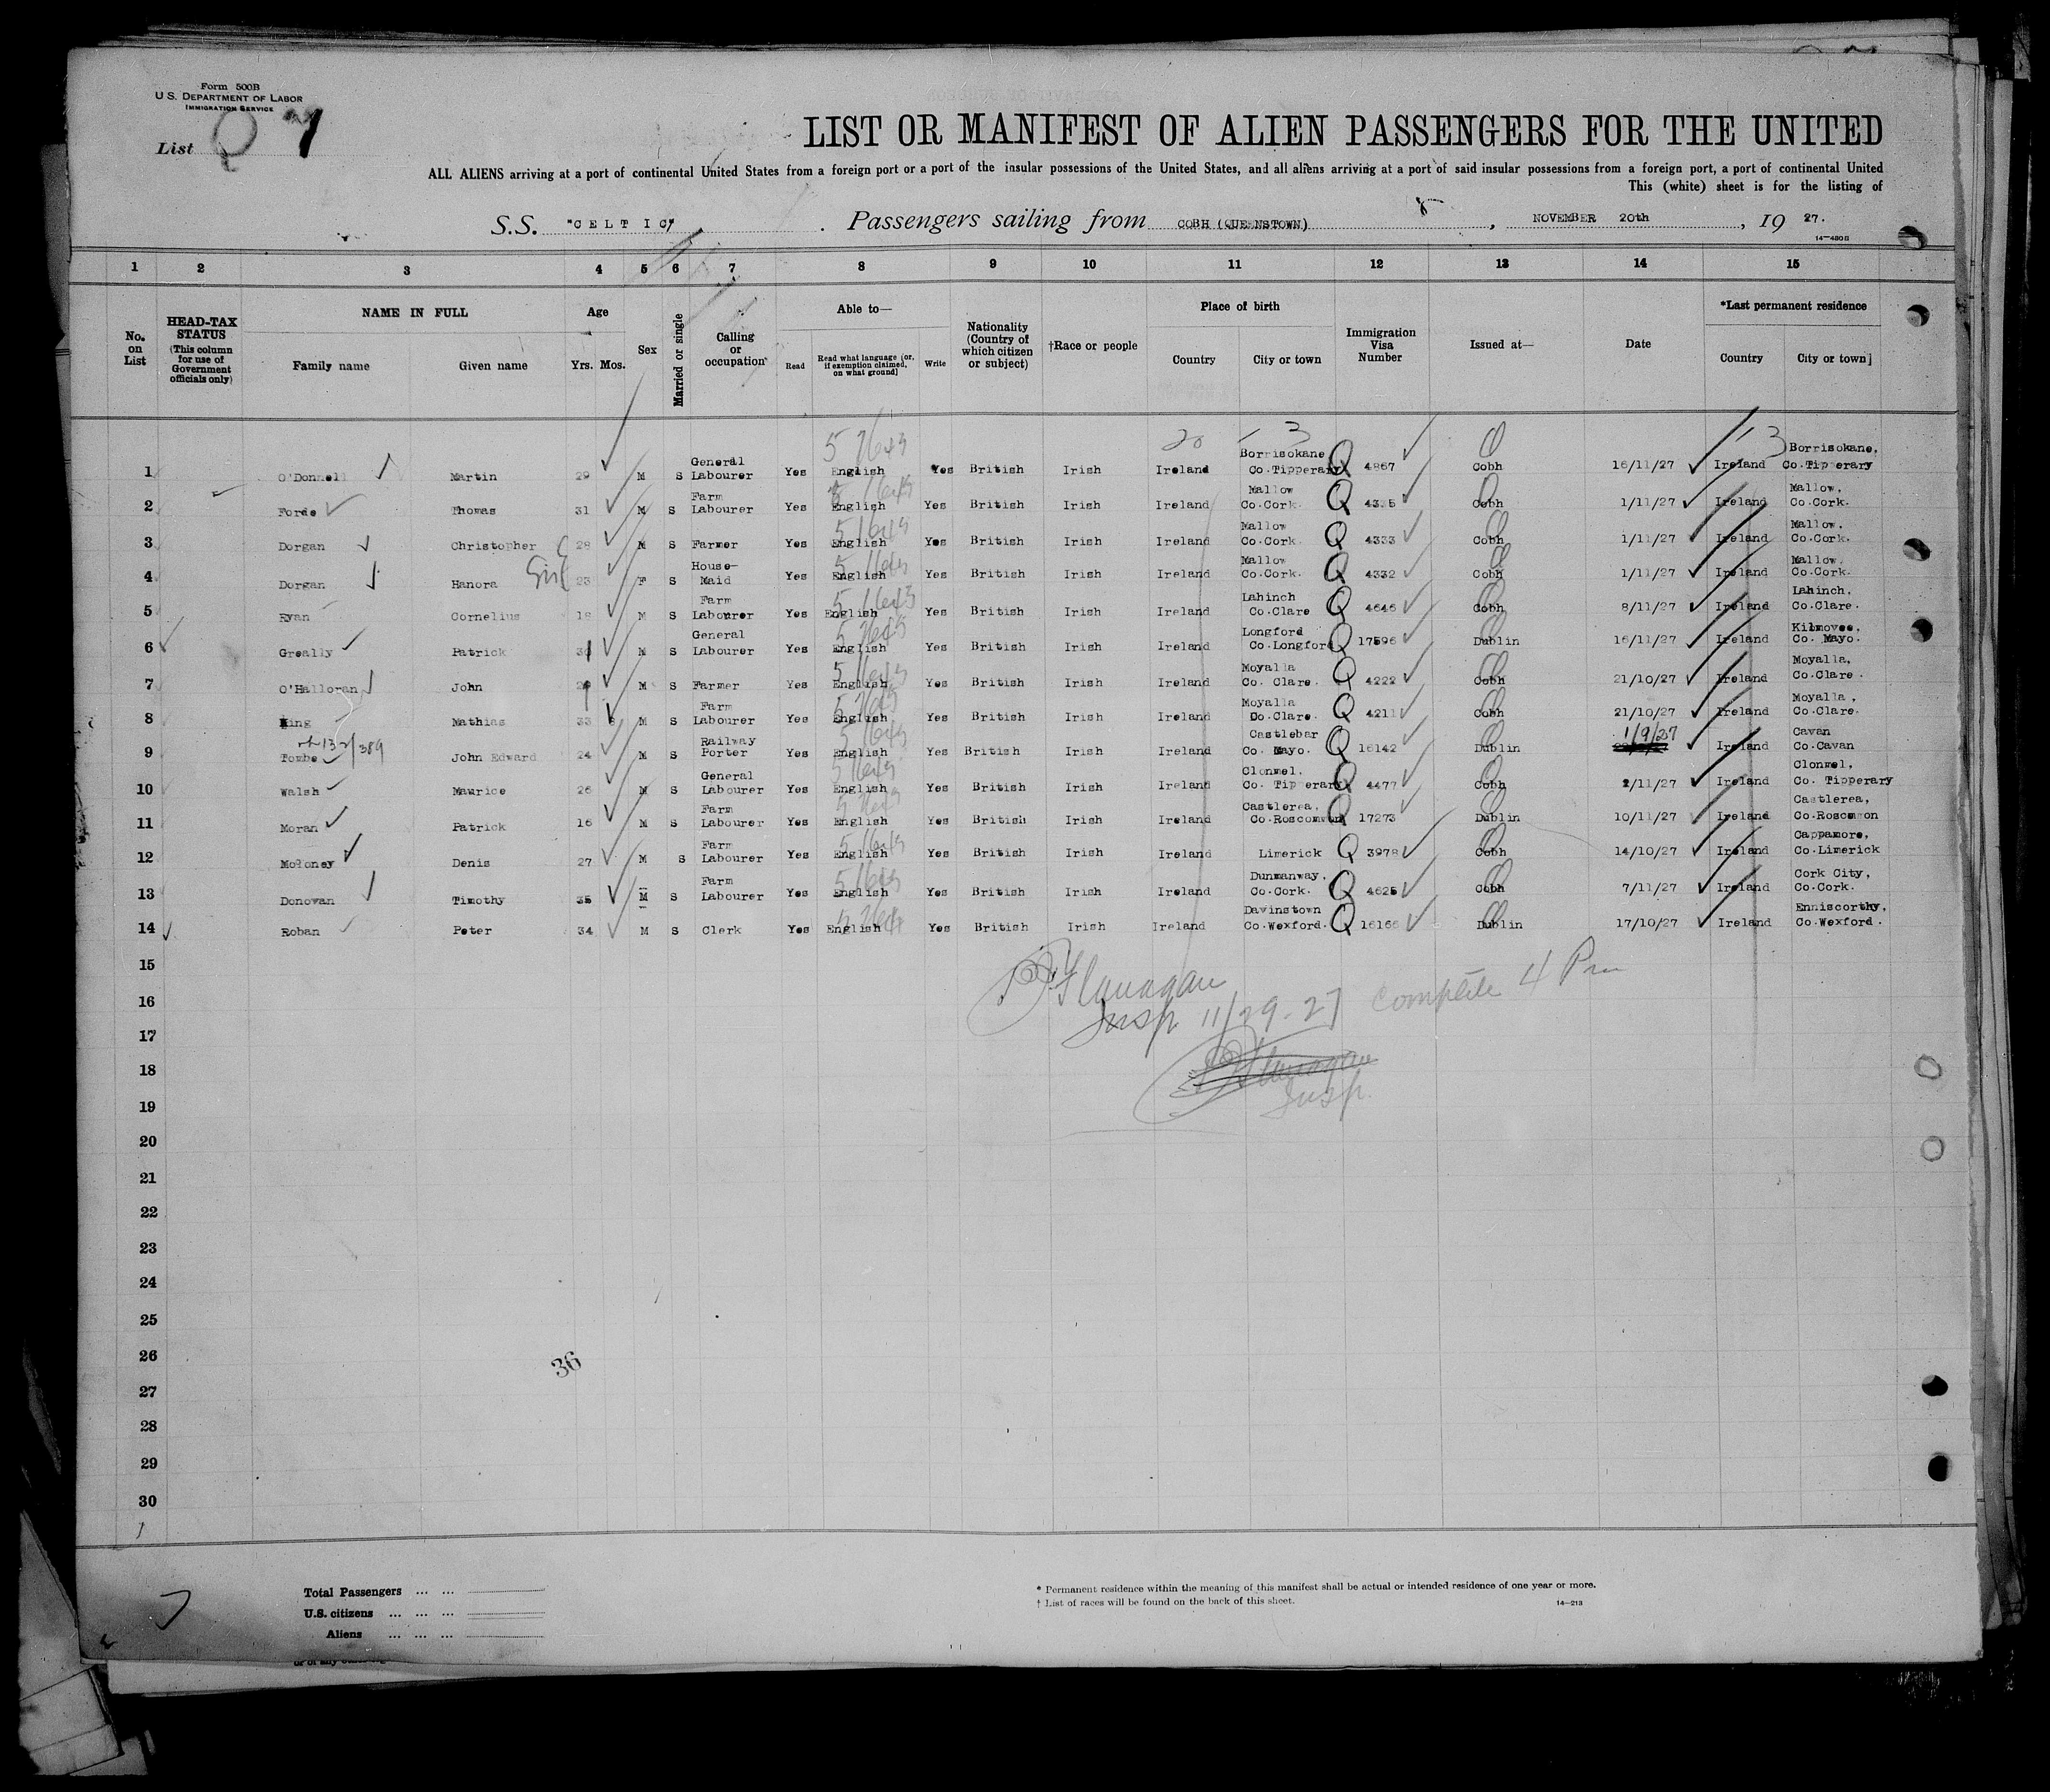 Form 500B
U.S. DEPARTMENT OF LABOR
IMMIGRATION SERVICE
List Q 7
LIST OR MANIFEST OF ALIEN PASSENGERS FOR THE UNITED
ALL ALIENS arriving at a port of continental United States from a foreign port or a port of the insular possessions of the United States, and all aliens arriving at a port of said insular possessions from a foreign port, a port of continental United
This (white) sheet is for the listing of
S.S. "CELTIC" . Passengers sailing from COBH (QUEENSTOWN) , NOVEMBER 20th , 19 27.
14-480B
1 2 3 4 5 6 7 8 9 10 11 12 13 14 15
No. on List
HEAD-TAX STATUS (This column for use of Government officials only)
NAME IN FULL
Family name Given name
Age Yrs. Mos.
Sex
Married or single
Calling or occupation
Able to—
Read Read what language (or, if exemption claimed, on what ground) Write
Nationality (Country of which citizen or subject)
†Race or people
Place of birth
Country City or town
Immigration Visa Number
Issued at—
Date
*Last permanent residence
Country City or town
1 O'Donnell Martin 29 M S General Labourer Yes English Yes British Irish Ireland Borrisokane Co.Tipperary Q 4867 Cobh 16/11/27 Ireland Borrisokane, Co.Tipperary
2 Forde Thomas 31 M S Farm Labourer Yes English Yes British Irish Ireland Mallow Co.Cork. Q Cobh 1/11/27 Ireland Mallow, Co.Cork.
3 Dorgan Christopher 28 M S Farmer Yes English Yes British Irish Ireland Mallow Co.Cork. Q 4333 Cobh 1/11/27 Ireland Mallow, Co.Cork.
4 Dorgan Hanora 23 F S House-Maid Yes English Yes British Irish Ireland Mallow Co.Cork. Q 4332 Cobh 1/11/27 Ireland Mallow, Co.Cork.
5 Ryan Cornelius 18 M S Farm Labourer Yes English Yes British Irish Ireland Lahinch Co.Clare Q 4646 Cobh 8/11/27 Ireland Lahinch, Co.Clare.
6 Greally Patrick M S General Labourer Yes English Yes British Irish Ireland Longford Co.Longford Q 17596 Dublin 16/11/27 Ireland Kilmovee, Co. Mayo.
7 O'Halloran John M S Farmer Yes English Yes British Irish Ireland Moyalla Co. Clare. Q 4222 Cobh 21/10/27 Ireland Moyalla, Co.Clare.
8 King Mathias 33 M S Farm Labourer Yes English Yes British Irish Ireland Moyalla Co.Clare. Q 4211 Cobh 21/10/27 Ireland Moyalla, Co.Clare.
9 Tombe John Edward 24 M S Railway Porter Yes English Yes British Irish Ireland Castlebar Co. Mayo. Q 16142 Dublin 1/9/27 Ireland Cavan Co.Cavan
10 Walsh Maurice 26 M S General Labourer Yes English Yes British Irish Ireland Clonmel. Co. Tipperary Q 4477 Cobh 2/11/27 Ireland Clonmel, Co. Tipperary
11 Moran Patrick 16 M S Farm Labourer Yes English Yes British Irish Ireland Castlerea, Co.Roscommon Q 17273 Dublin 10/11/27 Ireland Castlerea, Co.Roscommon
12 Moloney Denis 27 M S Farm Labourer Yes English Yes British Irish Ireland Limerick Q 3978 Cobh 14/10/27 Ireland Cappamore, Co.Limerick
13 Donovan Timothy 35 M S Farm Labourer Yes English Yes British Irish Ireland Dunmanway, Co.Cork. Q 4625 Cobh 7/11/27 Ireland Cork City, Co.Cork.
14 Roban Peter 34 M S Clerk Yes English Yes British Irish Ireland Davinstown Co.Wexford. Q 16166 Dublin 17/10/27 Ireland Enniscorthy, Co.Wexford.
15
Flanagan
16
Insp 11/29-27 Complete 4 Pm
17
18
Flanagan
19
Insp.
20
21
22
23
24
25
26
36
27
28
29
30
Total Passengers ... ...
U.S. citizens ... ... ...
Aliens ... ... ...
* Permanent residence within the meaning of this manifest shall be actual or intended residence of one year or more.
† List of races will be found on the back of this sheet.
14-213